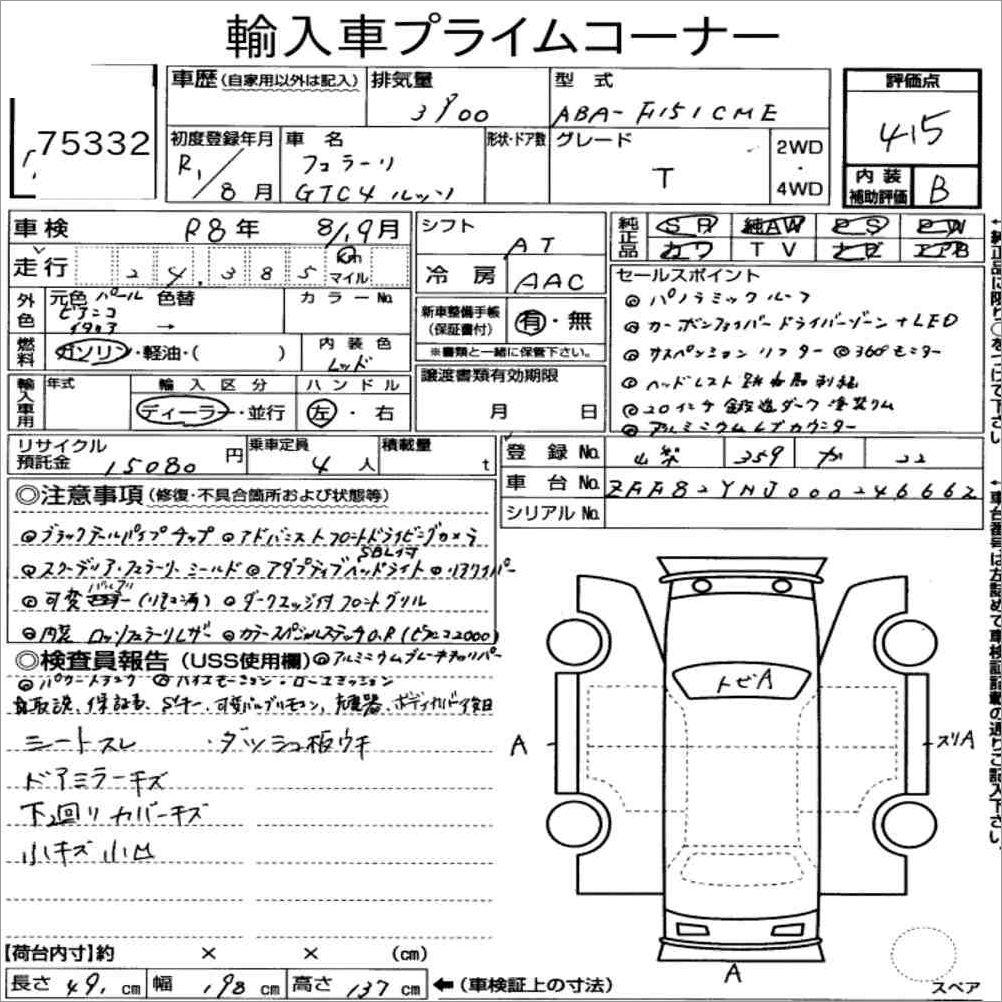 輸入車プライムコーナー
75332
車歴 (自家用以外は記入)
排気量
3900
型式
ABA-F151CME
評価点
4.5
初度登録年月
R1/8月
車名
フェラーリ
GTC4 ルッソ
形状・ドア数
グレード
T
2WD
・
4WD
内装
補助評価
B
車検
R8年 8/19月
走行 24,385 km
マイル
シフト
AT
冷房
AAC
純正品
SR 純AW PS PW
カワ TV ナビ エアB
外色
元色 パール 色替
ビアンコ
イタリア →
カラーNo.
新車整備手帳
(保証書付)
有・無
※書類と一緒に保管下さい。
燃料
ガソリン・軽油・( )
内装色
レッド
輸入車用
年式
輸入区分
ディーラー・並行
ハンドル
左・右
譲渡書類有効期限
月 日
セールスポイント
◎パノラミックルーフ
◎カーボンファイバードライバーゾーン+LED
◎サスペンションリフター ◎360°モニター
◎ヘッドレスト跳ね馬刺繍
◎20インチ鍛造ダーク塗装リム
◎アルミニウムレブカウンター
リサイクル
預託金
15080円
乗車定員
4人
積載量
t
登録No.
山梨 359 カ 22
車台No.
ZFF82YNJ000246662
シリアルNo.
◎注意事項 (修復・不具合箇所および状態等)
◎ブラックテールパイプチップ ◎アドバンストフロントドライビングカメラ
◎スクーデリア・フェラーリ シールド ◎アダプティブヘッドライト SBL付 ◎リアワイパー
◎可変バルブ(リモコン有) ◎ダークエッジ付フロントグリル
◎内装 ロッソフェラーリレザー ◎カラースペシャルステッチ
◎検査員報告 (USS使用欄) ◎アルミニウムブレーキキャリパー
◎パワートランク ◎ハイエモーション・ローエミッション
取説、保証書、Sキー、可変バルブリモコン、充電器、ボディカバー
シートスレ ・ダッシュ板ウキ
ドアミラーキズ
下回りカバーキズ
小キズ 小凹
トビA
A
スリA
A
【荷台内寸】約 × × (cm)
長さ 491 cm 幅 198 cm 高さ 137 cm ←(車検証上の寸法)
スペア
←純正品に限り○をつけて下さい。
←車台番号は左詰めで車検証記載の通りご記入下さい。